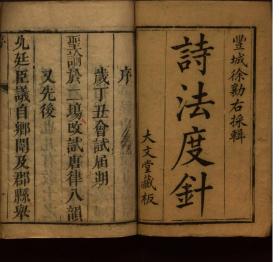 豐城徐勷右採輯
詩法度針
大文堂藏板
序
歲丁丑會試屆期
聖諭於二場改試唐律八韻
又先後
允廷臣議自鄉闈及郡縣舉